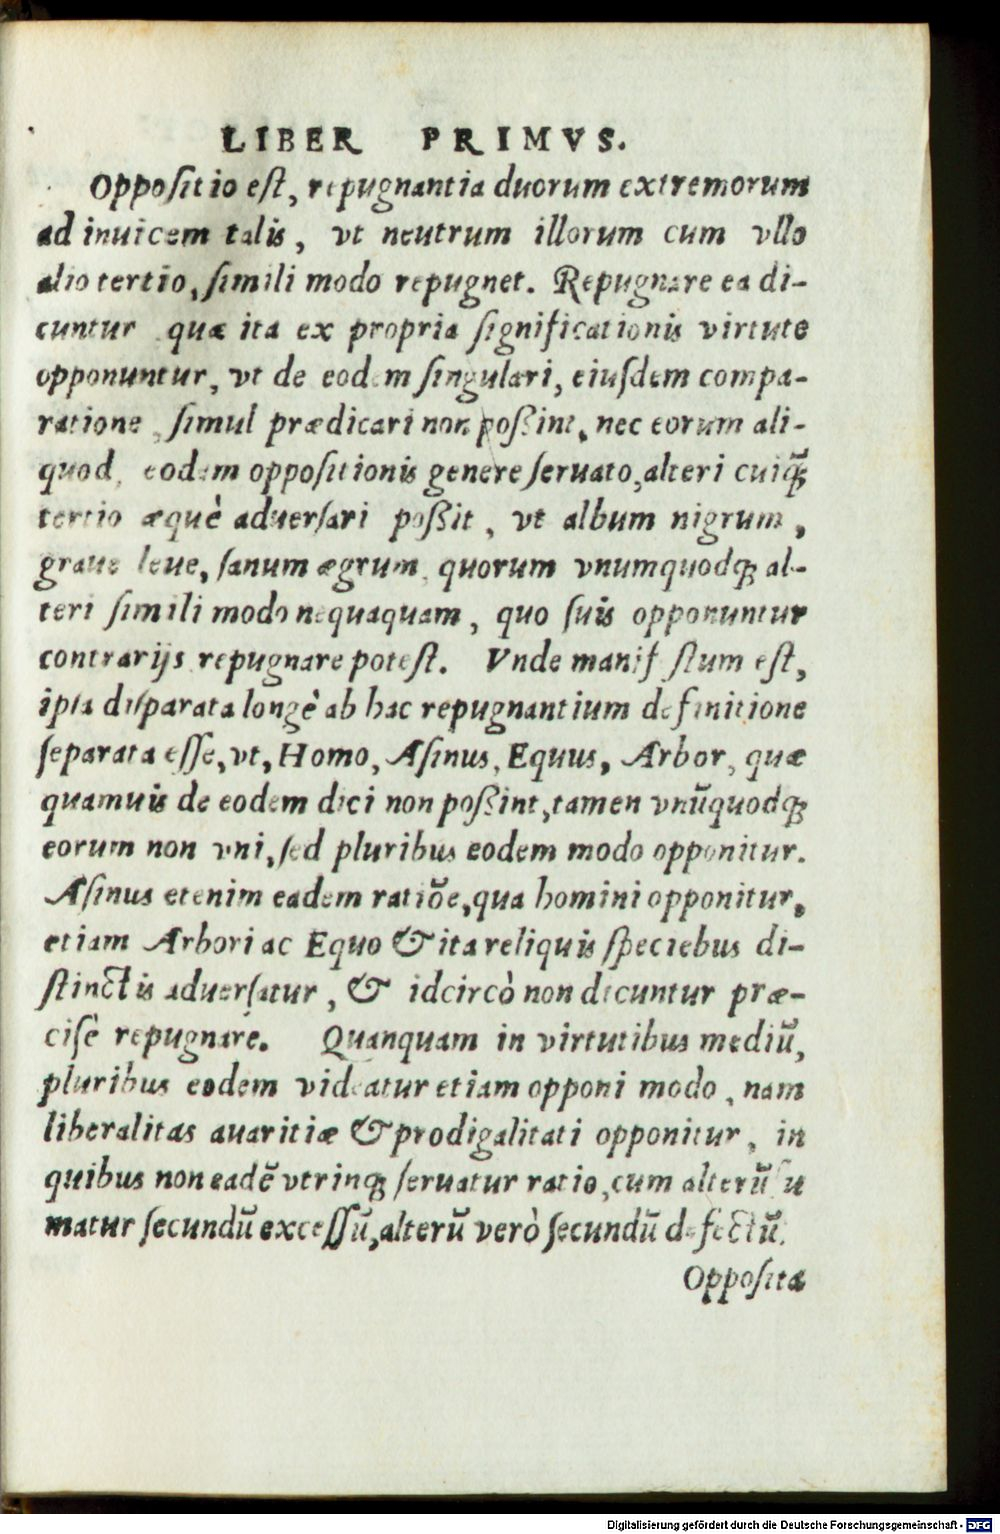 LIBER PRIMVS.
Oppoſitio eſt, repugnantia duorum extremorum
ad inuicem talis, vt neutrum illorum cum vllo
alio tertio, ſimili modo repugnet. Repugnare ea di-
cuntur quæ ita ex propria ſignificationis virtute
opponuntur, vt de eodem ſingulari, eiuſdem compa-
ratione, ſimul prædicari non poßint, nec eorum ali-
quod, eodem oppoſitionis genere ſeruato, alteri cuiq̃ꝫ
tertio æquè aduerſari poßit, vt album nigrum,
graue leue, ſanum ægrum, quorum vnumquodqꝫ al-
teri ſimili modo nequaquam, quo ſuis opponuntur
contrarijs repugnare poteſt. Vnde manifeſtum eſt,
ipſa diſparata longè ab hac repugnantium definitione
ſeparata eſſe, vt, Homo, Aſinus, Equus, Arbor, quæ
quamuis de eodem dici non poßint, tamen vnūquodqꝫ
eorum non vni, ſed pluribus eodem modo opponitur.
Aſinus etenim eadem ratiōe, qua homini opponitur,
etiam Arbori ac Equo & ita reliquis ſpeciebus di-
ſtinctis aduerſatur, & idcircò non dicuntur præ-
ciſè repugnare. Quanquam in virtutibus mediū,
pluribus eodem videatur etiam opponi modo, nam
liberalitas auaritiæ & prodigalitati opponitur, in
quibus non eadē vtrinqꝫ ſeruatur ratio, cum alterū ſu
matur ſecundū exceſſū, alterū verò ſecundū defectū.
Oppoſita
Digitalisierung gefördert durch die Deutsche Forschungsgemeinschaft - DFG